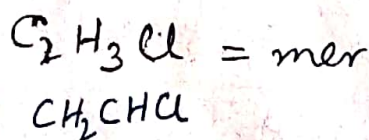 C₂H₃Cl = mer
CH₂CHCl